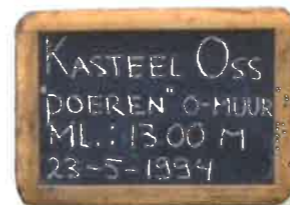 KASTEEL OSS
"POEREN" O-MUUR
ML.: 13.00 M
23-5-1994